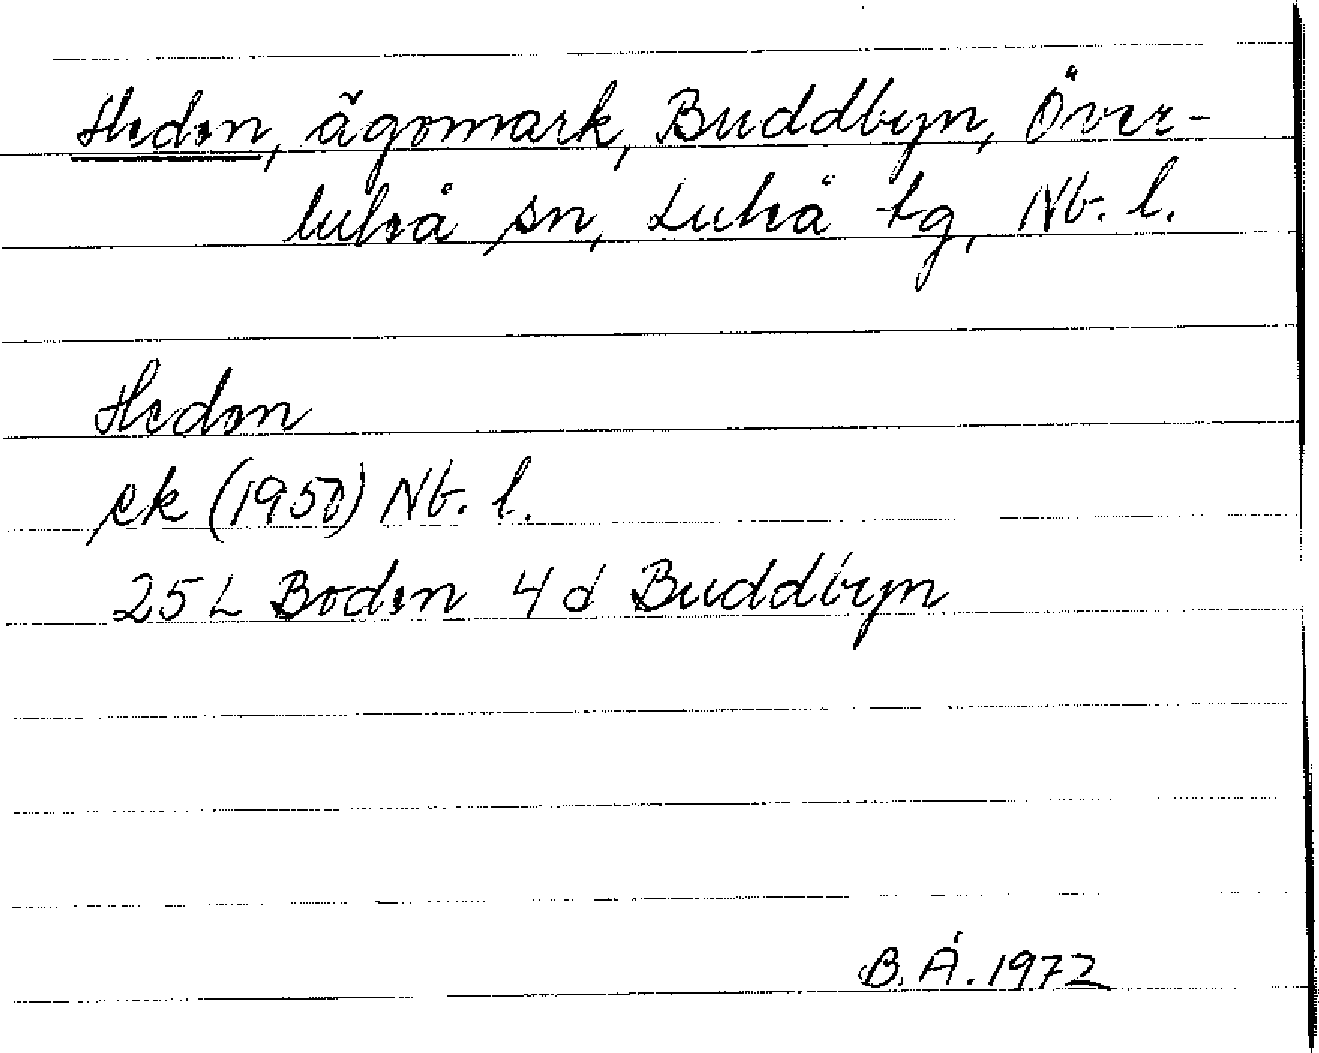 Heden, ägomark, Buddbyn, Över-
luleå sn, Luleå tg, Nb. l.
Heden
ek (1950) Nb. l.
25 L Boden 4 d Buddbyn
B. Å. 1972